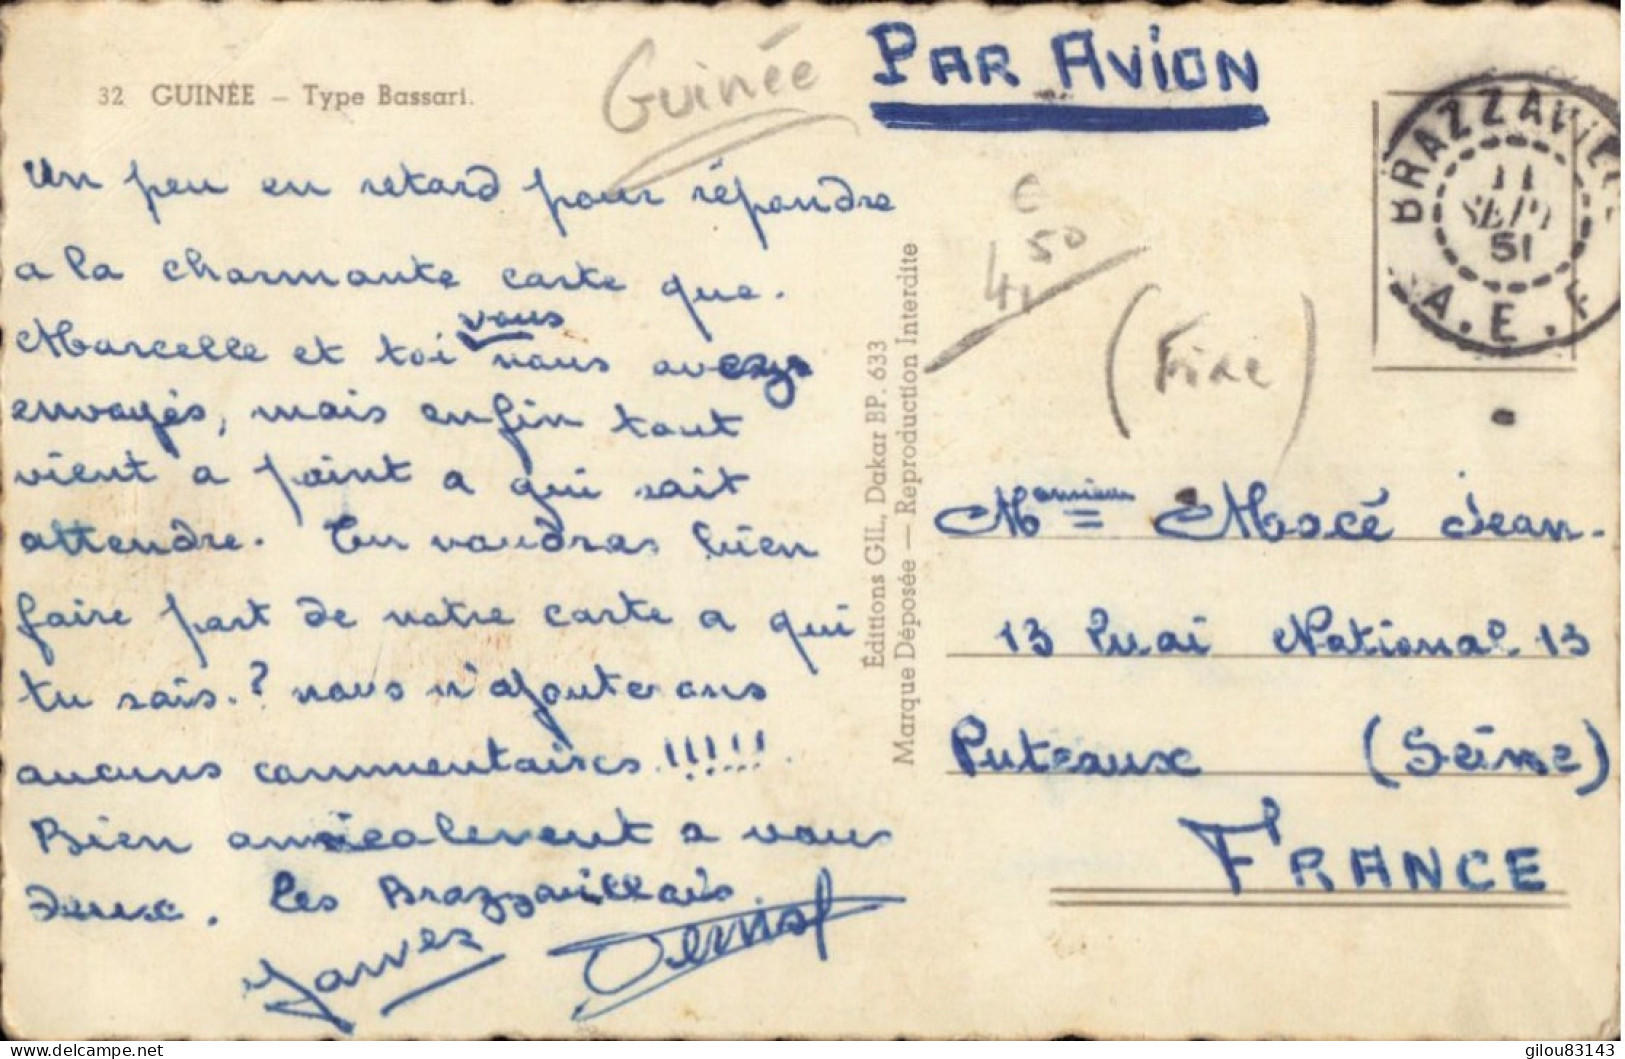 32 GUINÉE – Type Bassari.
Guinée
PAR AVION
BRAZZAVILLE
11
SEPT
51
A.E.F
Un peu en retard pour répondre
a la charmante carte que.
Marcelle et toi vous nous avez
envoyés, mais enfin tout
vient a point a qui sait
attendre. Tu voudras bien
faire part de notre carte a qui
tu sais.? nous n'ajouterons
aucuns commentaires!!!!!.
Bien amicalement a vous
deux. Les Brazzavillois.
€
4,50
(Fixe)
Éditions GIL, Dakar BP. 633
Marque Déposée — Reproduction Interdite
Monsieur = Macé Jean.
13 Quai National. 13
Puteaux (Seine)
FRANCE
gilou83143